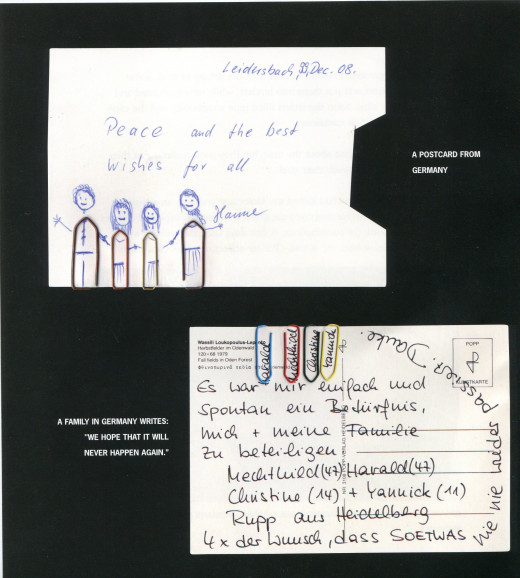 Leidersbach, Dec. 08.
Peace and the best
wishes for all
Hanne
A POSTCARD FROM
GERMANY
Wassili Loukopoulos-Lepanto
Herbstfelder im Odenwald
120×68 1979
Fall fields in Oden Forest
Harald
Mechthild
Christine
Yannick
POPP
KUNSTKARTE
Es war mir einfach und
spontan ein Bedürfnis,
mich + meine Familie
zu beteiligen
Mechthild (47) Harald (47)
Christine (14) + Yannick (11)
Rupp aus Heidelberg
4x der Wunsch, dass SOETWAS
nie nie wieder passiert. Danke.
A FAMILY IN GERMANY WRITES:
"WE HOPE THAT IT WILL
NEVER HAPPEN AGAIN."